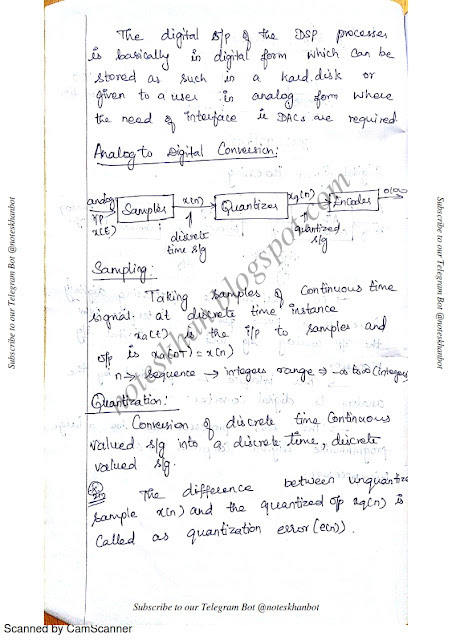 The digital s/p of the DSP processer
is basically in digital form which can be
stored as such in a hard.disk or
given to a user in analog form where
the need of interface ie DACs are required
Analog to Digital Conversion:
analog
i/p
x(t)
Sampler
x(n)
discrete
time s/g
Quantizer
xq(n)
quantized
s/g
Encoder
Sampling
Taking samples of continuous time
signal at discrete time instance
xa(t) is the i/p to samples and
o/p is xa(nT) = x(n)
n → sequence → integers range → -∞ to ∞ (integers
Quantization:
Conversion of discrete time continuous
valued s/g into a discrete time, discrete
valued s/g.
The difference between unquantize
sample x(n) and the quantized o/p xq(n) is
called as quantization error (e(n)).
noteskhan.blogspot.com
Subscribe to our Telegram Bot @noteskhanbot
Subscribe to our Telegram Bot @noteskhanbot
Subscribe to our Telegram Bot @noteskhanbot
Scanned by CamScanner